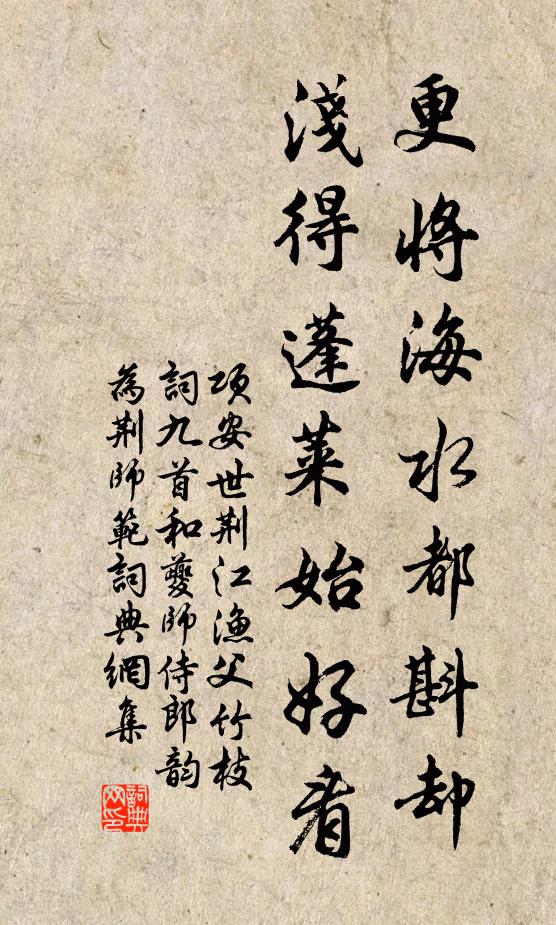 更將海水都斟却
淺得蓬萊始好看
項安世荆江漁父竹枝
詞九首和夔師侍郎韵
為荆師範詞典網集
詞典
网印